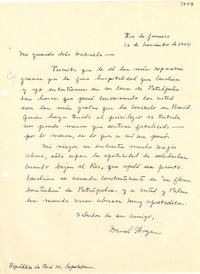 Río de Janeiro
16 de noviembre de 1944
Mi querida doña Gabriela:
Permita que le dé las más expresivas
gracias por la fina hospitalidad que Carolina
y yo encontramos en su casa de Petrópolis.
Las horas que pasé conversando con usted
son las más gratas que he conocido en Brasil.
Quien haga tenido el privilegio de tratarla
no puede menos que sentirse fortalecido
por lo menos, es lo que a mí me pasó.
Mi mujer se encuentra mucho mejor
ahora, sólo espera la oportunidad de saludarla
cuando bajen al Río, que ojalá sea pronto.
Carolina se acuerda constantemente de su "flor
bonita" de Petrópolis; y a usted y Palma
les manda unos abrazos muy apretados.
Saludos de su amigo,
República do Perú 72, Copacabana.